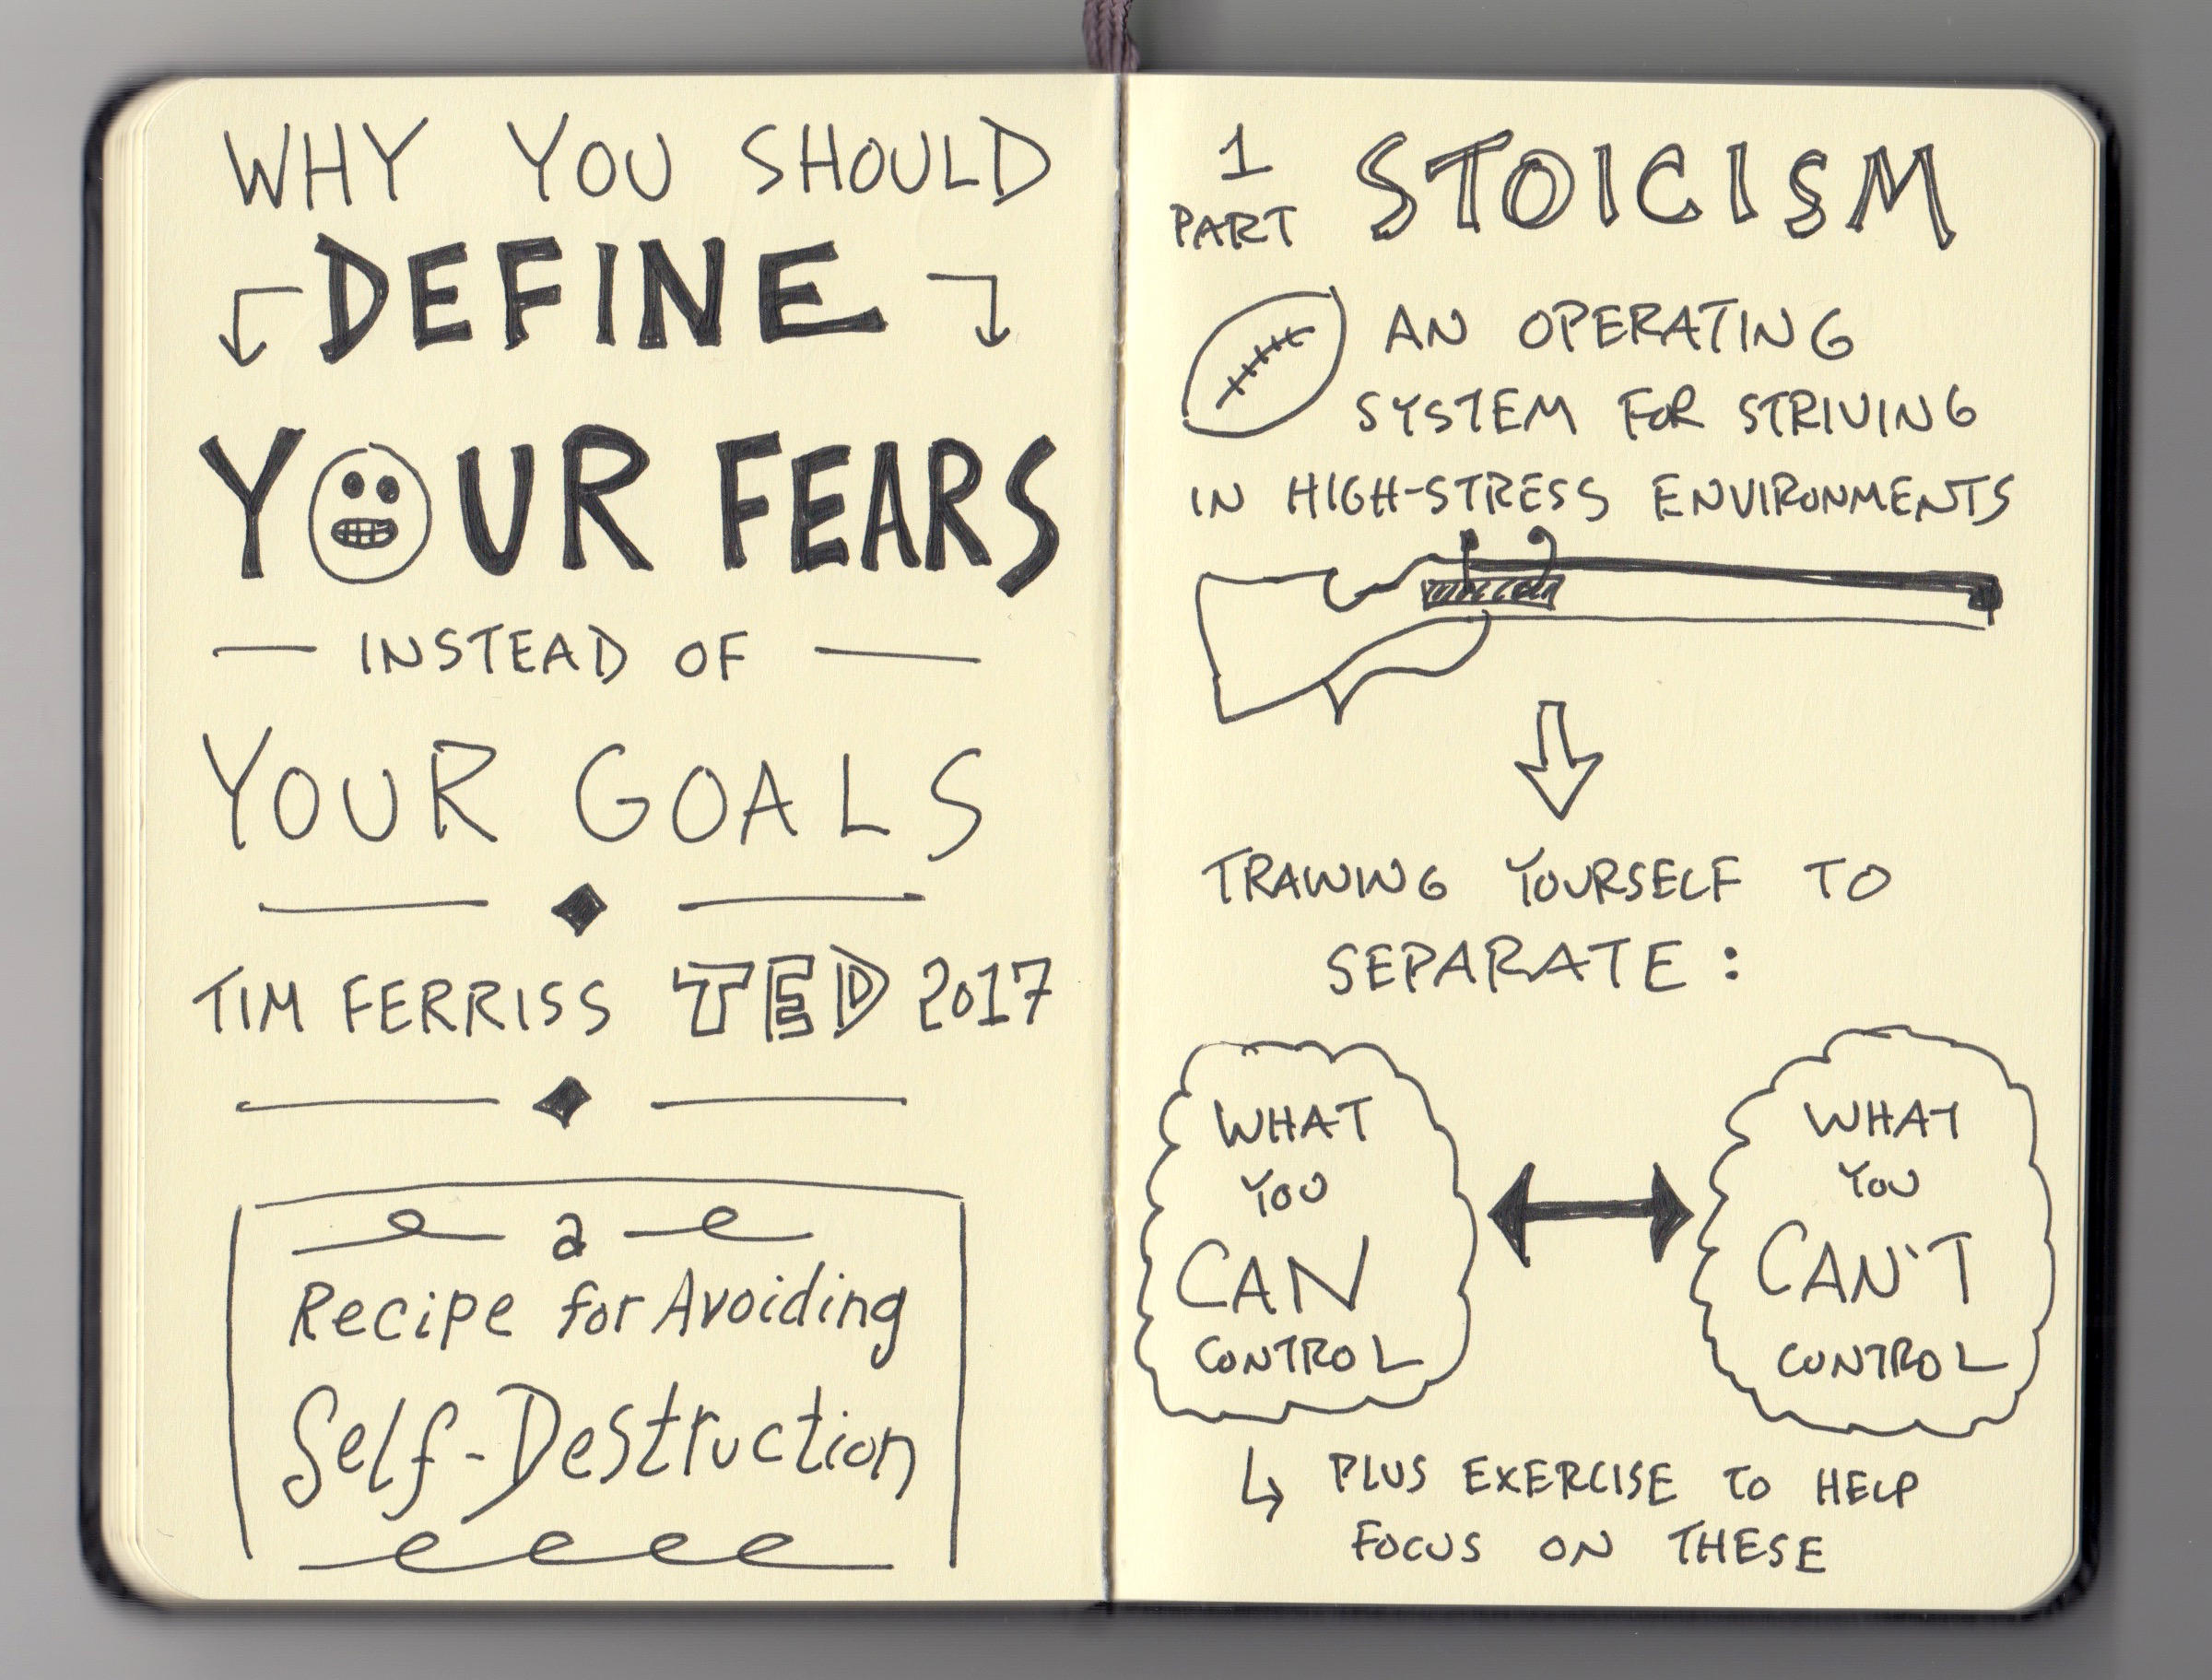 WHY YOU SHOULD
DEFINE
YOUR FEARS
INSTEAD OF
YOUR GOALS
TIM FERRISS TED 2017
a
Recipe for Avoiding
Self-Destruction
1
PART
STOICISM
AN OPERATING
SYSTEM FOR STRIVING
IN HIGH-STRESS ENVIRONMENTS
TRAINING YOURSELF TO
SEPARATE:
WHAT
YOU
CAN
CONTROL
WHAT
YOU
CAN'T
CONTROL
PLUS EXERCISE TO HELP
FOCUS ON THESE